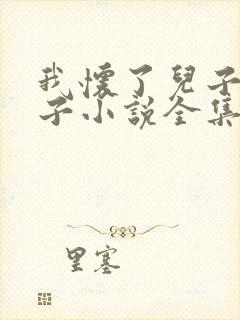 我懷了兒子
子小說全集
里塞